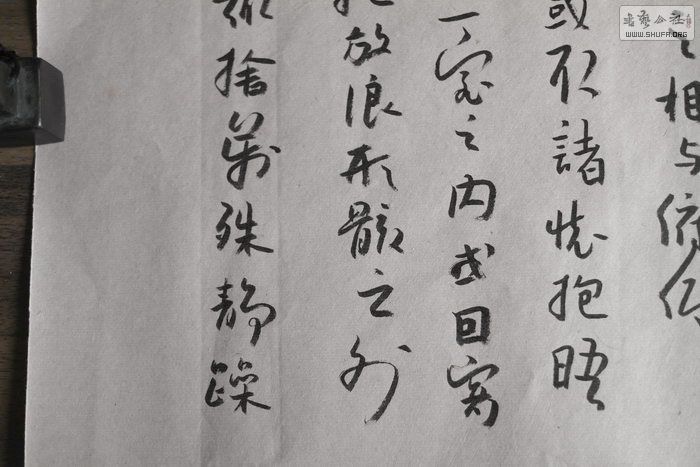 相与俯仰
或取諸怀抱晤
一室之内或因寄
放浪形骸之外
捨萬殊静躁
書藝公社
WWW.SHUFA.ORG